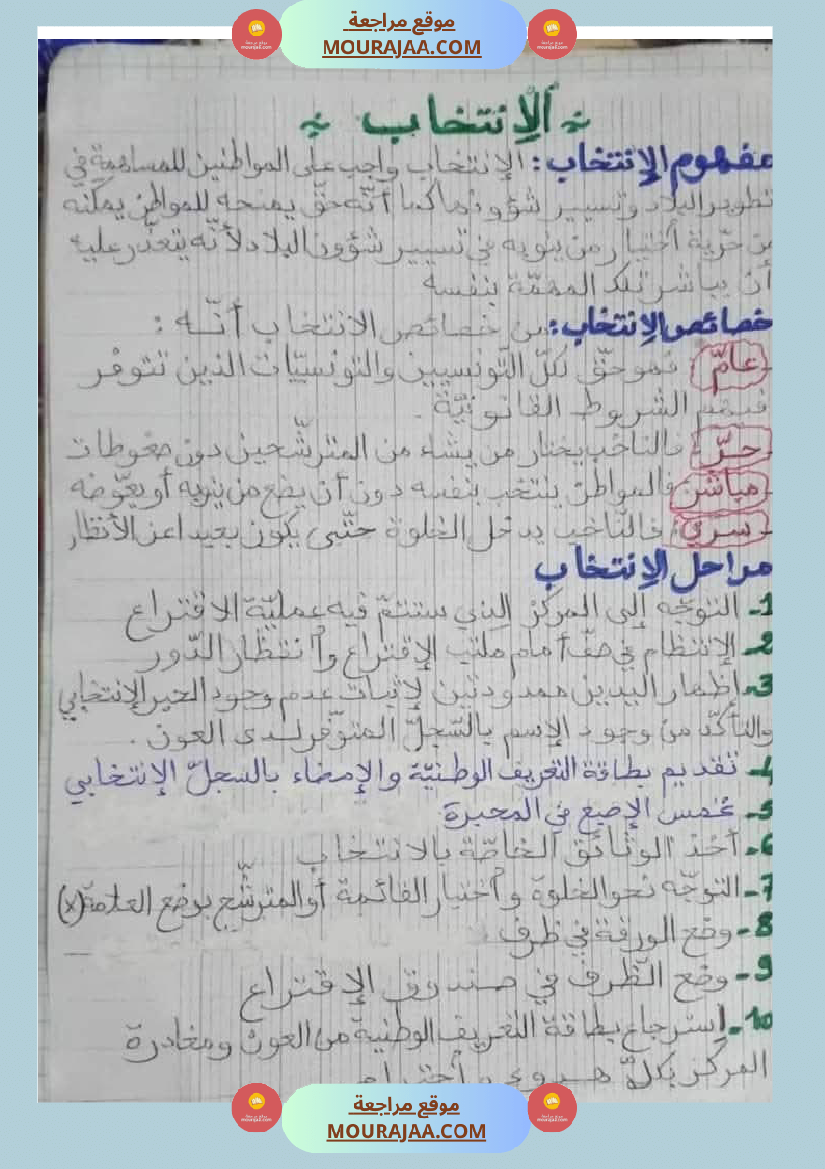 موقع مراجعة
MOURAJAA.COM
الإنتخاب
مفهوم الإنتخاب: الإنتخاب واجب على المواطنين للمساهمة في
تطوير البلاد وتسيير شؤونها كما أنّه حقّ يمنحه للمواطن يمكّنه
من حرّية أختيار من ينوبه في تسيير شؤون البلاد لأنّه يتعذّر عليه
أن يباشر تلك المهمّة بنفسه
خصائص الإنتخاب: من خصائص الانتخاب أنّه :
- عامّ فهو حقّ لكلّ التّونسيين والتّونسيّات الذين تتوفر
فيهم الشروط القانونيّة.
- حرّ فالناخب يختار من يشاء من المترشّحين دون ضغوطات
- مباشر فالمواطن ينتخب بنفسه دون أن يضع من ينوبه أو يعوّضه
- سري فالنّاخب يدخل الخلوة حتّى يكون بعيدا عن الأنظار
مراحل الإنتخاب
1- التوجّه إلى المركز الذي ستتمّ فيه عمليّة الاقتراع
2- الإنتظام في صفّ أمام مكتب الإقتراع وأنتظار الدّور
3- إظهار اليدين ممدودتين لإثبات عدم وجود الحبر الإنتخابي
والتأكّد من وجود الإسم بالسّجلّ المتوفّر لدى العون.
4- تقديم بطاقة التعريف الوطنيّة والإمضاء بالسجلّ الإنتخابي
5- غمس الإصبع في المحبرة
6- أخذ الوثائق الخاصّة بالانتخاب
7- التوجّه نحو الخلوة وأختيار القائمة أو المترشّح بوضع العلامة (x)
8- وضع الورقة في ظرف
9- وضع الظّرف في صندوق الإقتراع
10- إسترجاع بطاقة التعريف الوطنية من العون ومغادرة
المركز بكلّ هدوء وأحترام
موقع مراجعة
MOURAJAA.COM